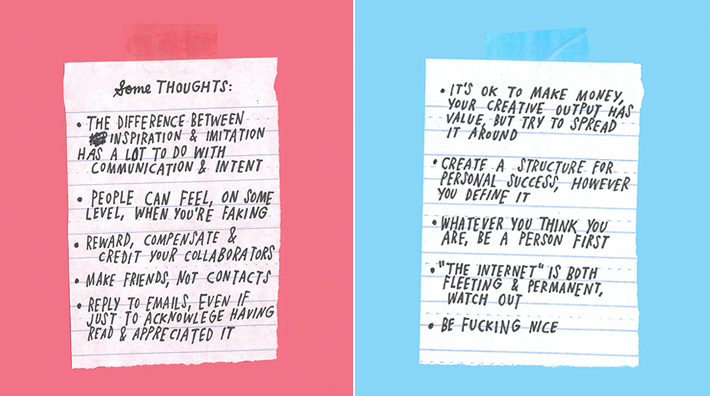 Some THOUGHTS:
• THE DIFFERENCE BETWEEN
INSPIRATION & IMITATION
HAS A LOT TO DO WITH
COMMUNICATION & INTENT
• PEOPLE CAN FEEL, ON SOME
LEVEL, WHEN YOU'RE FAKING
• REWARD, COMPENSATE &
CREDIT YOUR COLLABORATORS
• MAKE FRIENDS, NOT CONTACTS
• REPLY TO EMAILS, EVEN IF
JUST TO ACKNOWLEGE HAVING
READ & APPRECIATED IT
• IT'S OK TO MAKE MONEY,
YOUR CREATIVE OUTPUT HAS
VALUE, BUT TRY TO SPREAD
IT AROUND
• CREATE A STRUCTURE FOR
PERSONAL SUCCESS, HOWEVER
YOU DEFINE IT
• WHATEVER YOU THINK YOU
ARE, BE A PERSON FIRST
• "THE INTERNET" IS BOTH
FLEETING & PERMANENT,
WATCH OUT
• BE FUCKING NICE